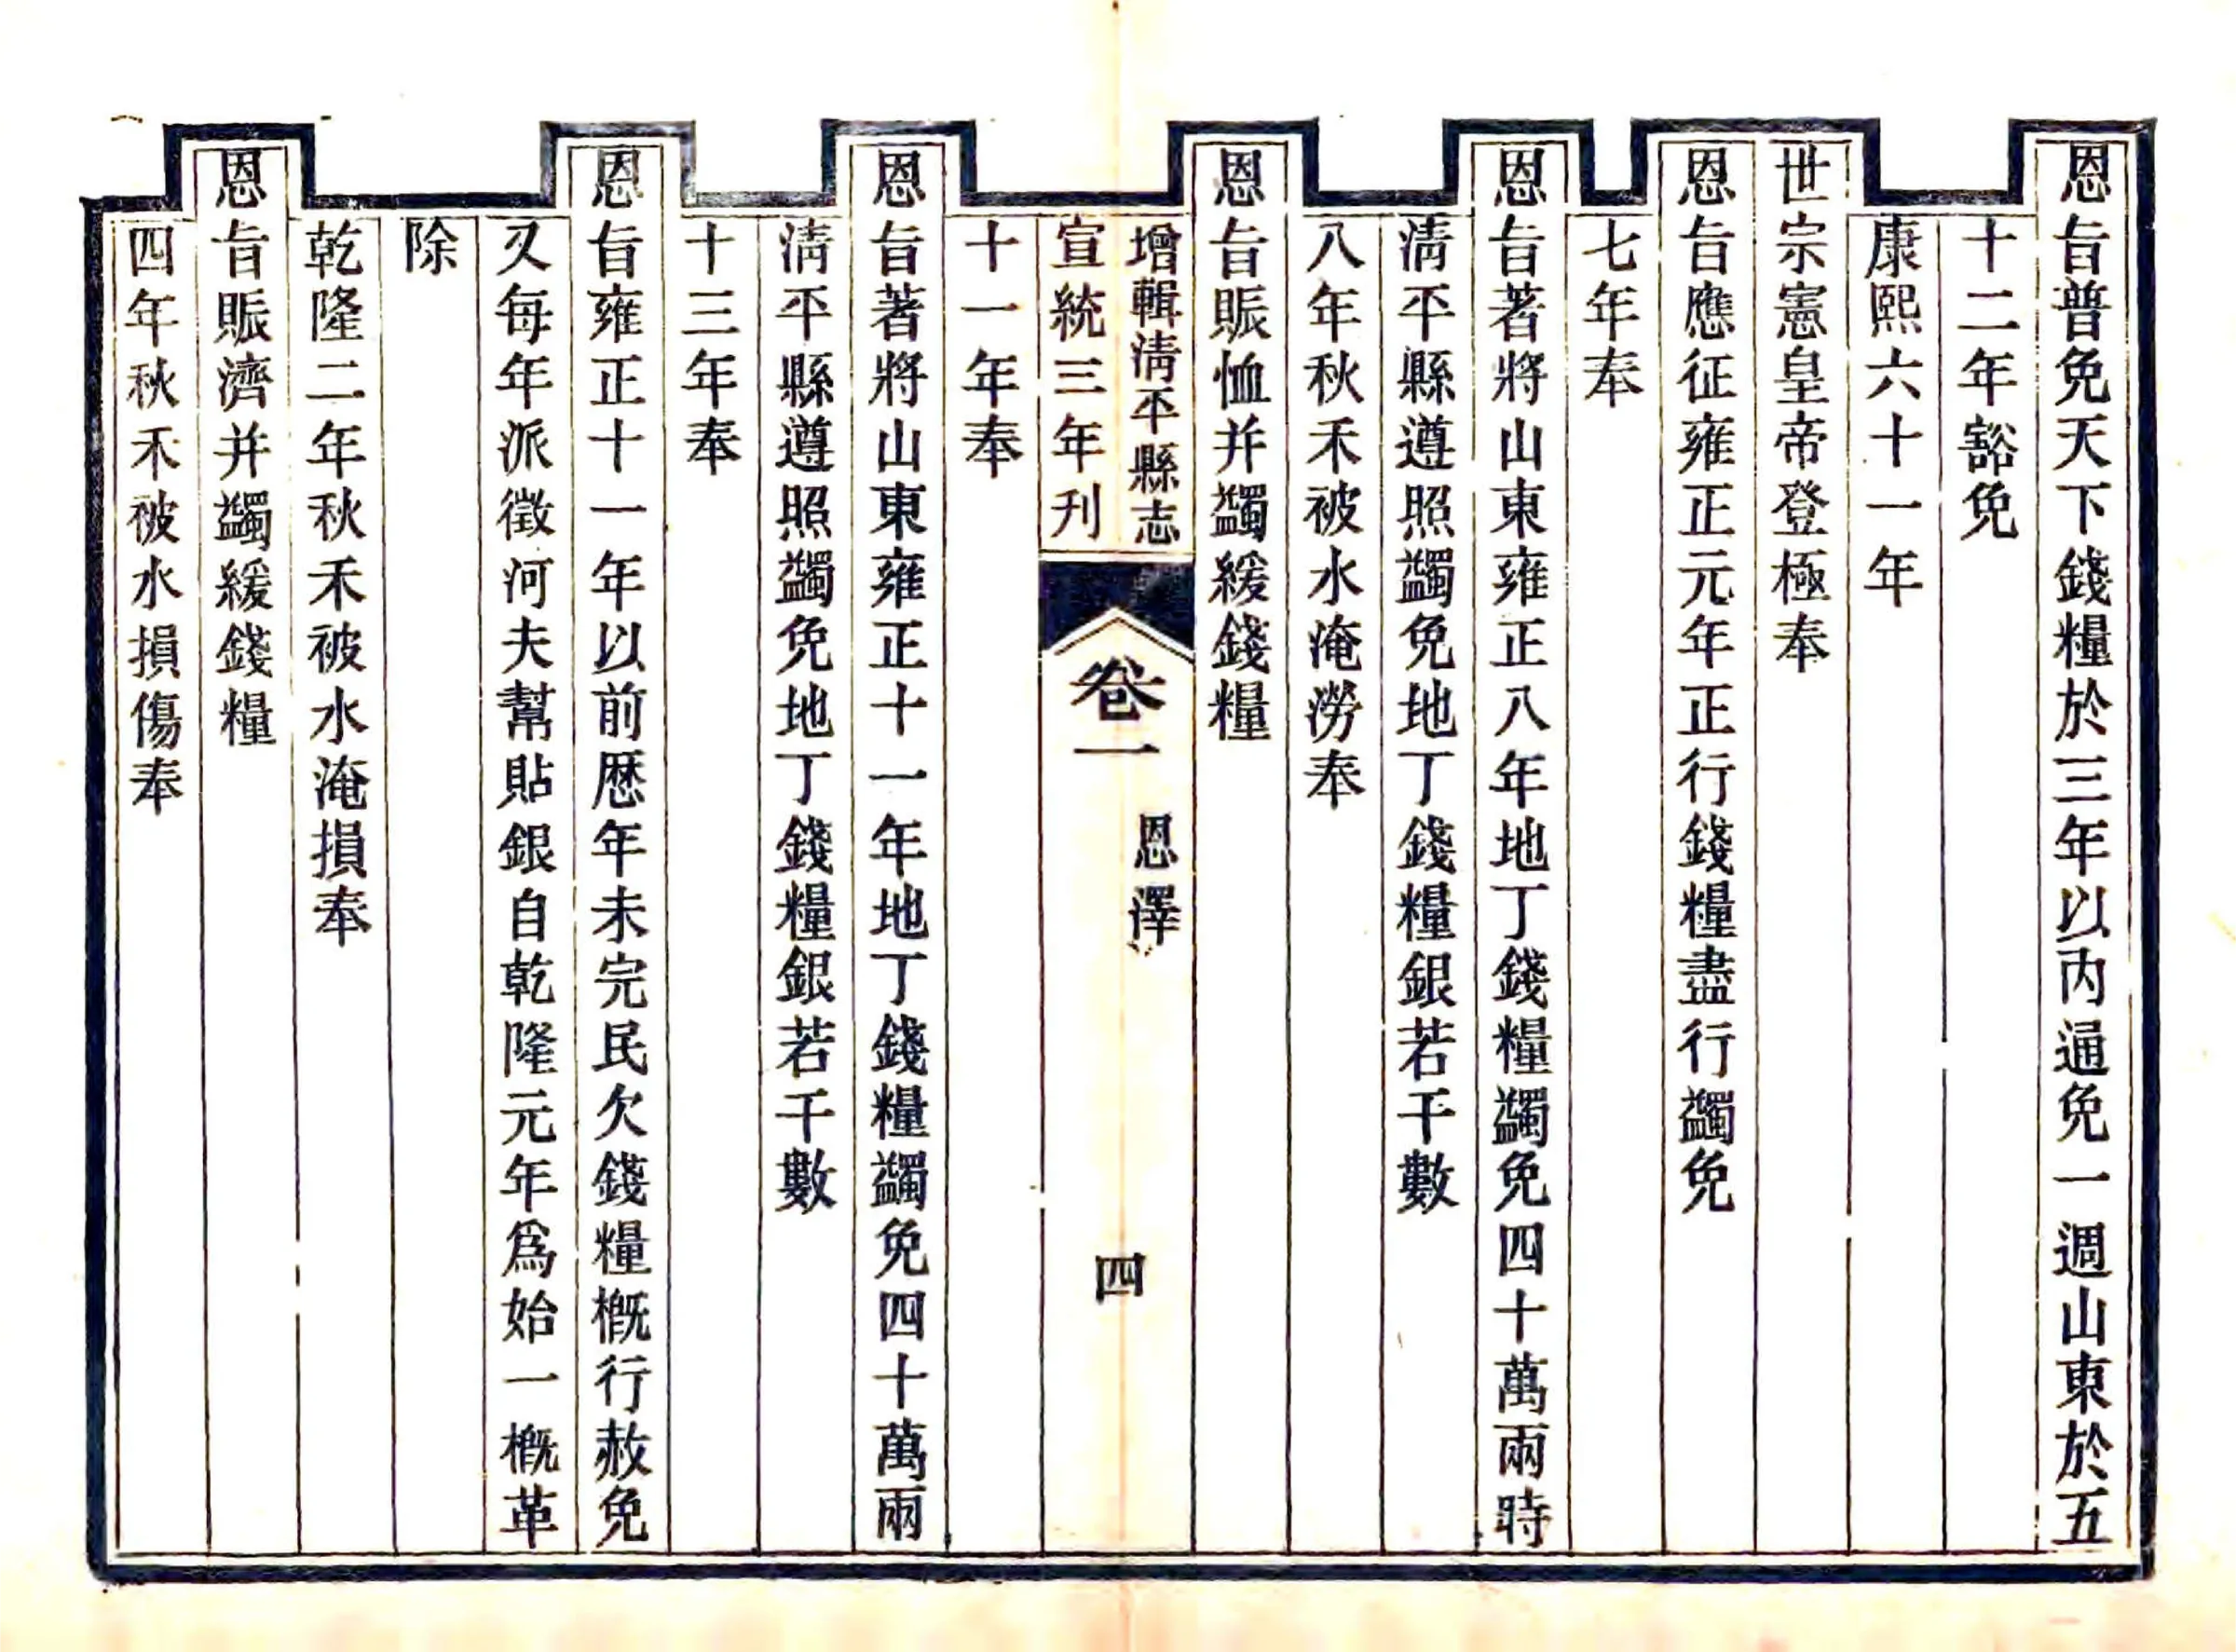 恩旨普免天下錢糧於三年以內通免一週山東於五
十二年豁免
康熙六十一年
世宗憲皇帝登極奉
恩旨應征雍正元年正行錢糧盡行蠲免
七年奉
恩旨著將山東雍正八年地丁錢糧蠲免四十萬兩時
淸平縣遵照蠲免地丁錢糧銀若干數
八年秋禾被水淹澇奉
恩旨賑恤并蠲緩錢糧
增輯淸平縣志
宣統三年刊
卷一
恩澤
四
十一年奉
恩旨著將山東雍正十一年地丁錢糧蠲免四十萬兩
淸平縣遵照蠲免地丁錢糧銀若干數
十三年奉
恩旨雍正十一年以前歷年未完民欠錢糧槪行赦免
又每年派徵河夫幫貼銀自乾隆元年爲始一槪革
除
乾隆二年秋禾被水淹損奉
恩旨賑濟并蠲緩錢糧
四年秋禾被水損傷奉